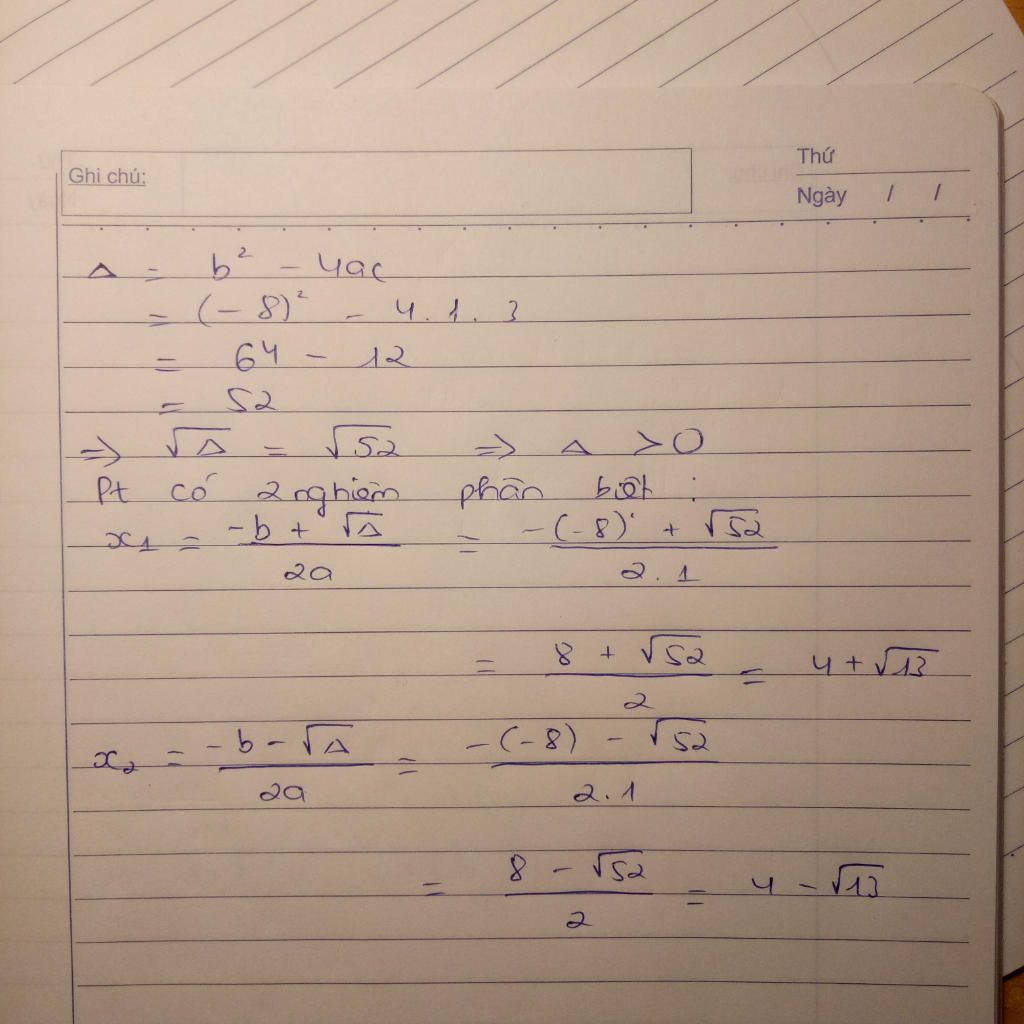 Ghi chú:
Thứ
Ngày / /
Δ = b² - 4ac
= (-8)² - 4.1.3
= 64 - 12
= 52
⇒ √Δ = √52 ⇒ Δ > 0
Pt có 2 nghiệm phân biệt :
x₁ = (-b + √Δ)/2a = (-(-8) + √52)/2.1
= (8 + √52)/2 = 4 + √13
x₂ = (-b - √Δ)/2a = (-(-8) - √52)/2.1
= (8 - √52)/2 = 4 - √13